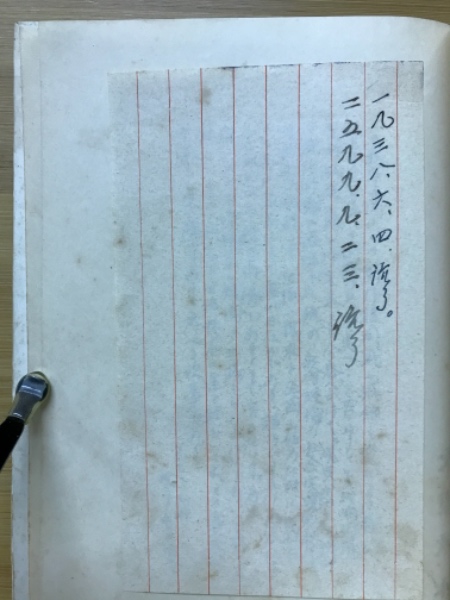 一九三八、六、四、読了。
二五九九、九、二三、読了